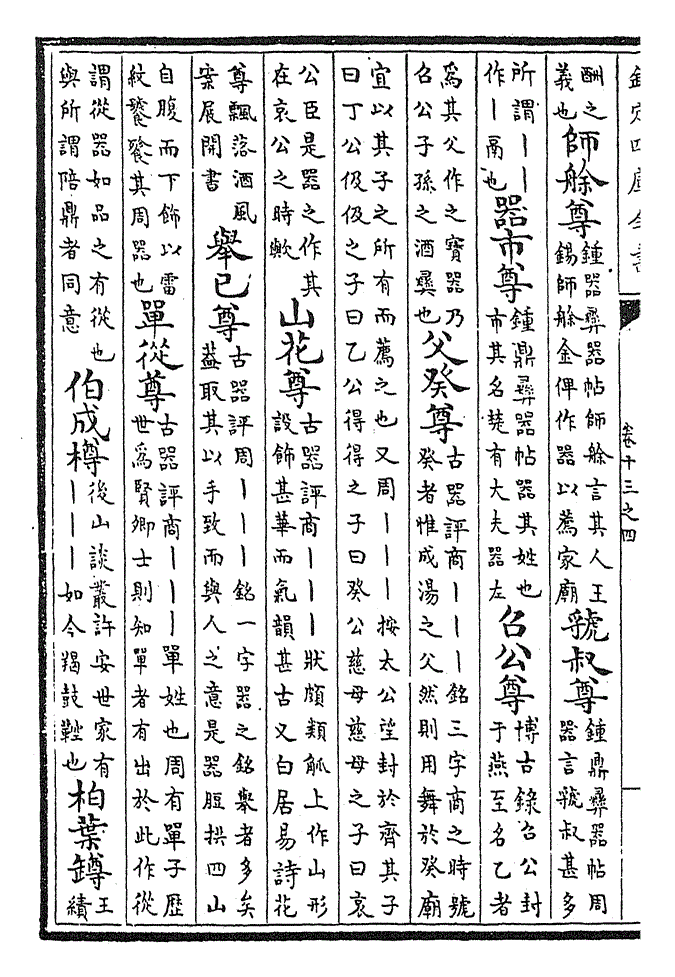 欽定四庫全書
卷十三之四
酬之義也師艅尊鍾器彞器帖師艅言其人王錫師艅金俾作器以薦家廟虢叔尊鍾鼎彞器帖周器言虢叔甚多
所謂丨丨作丨鬲也器市尊鍾鼎彞器帖器其姓也市其名楚有大夫器左召公尊博古錄召公封于燕至名乙者
為其父作之寶器乃召公子孫之酒彞也父癸尊古器評商丨丨丨銘三字商之時號癸者惟成湯之父然則用舞於癸廟
宜以其子之所有而薦之也又周丨丨丨按太公望封於齊其子曰丁公伋伋之子曰乙公得得之子曰癸公慈母慈母之子曰哀
公臣是器之作其在哀公之時歟山花尊古器評商丨丨丨狀頗類觚上作山形設飾甚華而氣韻甚古又白居易詩花
尊飄落酒風案展開書舉已尊古器評周丨丨丨銘一字器之銘舉者多矣蓋取其以手致而與人之意是器脰拱四山
自腹而下飾以雷紋饕餮其周器也單從尊古器評商丨丨丨單姓也周有單子歷世為賢卿士則知單者有出於此作從
謂從器如品之有從也與所謂陪鼎者同意伯成樽後山談叢許安世家有丨丨丨如今羯鼓鞚也柏葉罇王績